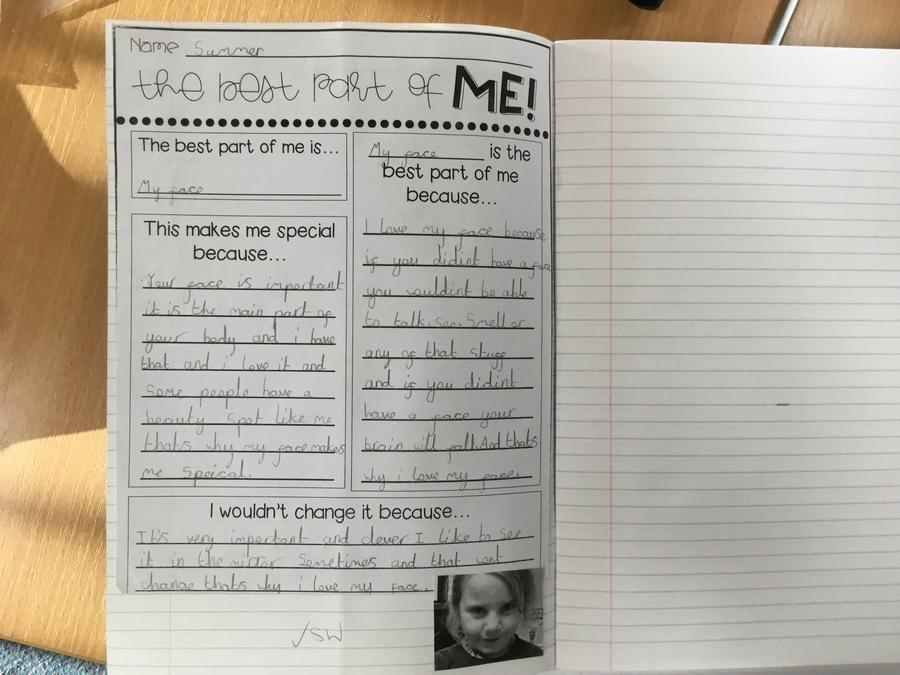 Name Summer
the best part of ME!
The best part of me is...
My face
This makes me special
because...
Your face is important
it is the main part of
your body and i have
that and i love it and
some people have a
beauty spot like me
thats why my face makes
me speical.
My face is the
best part of me
because...
I love my face because
if you didint have a face
you wouldint be able
to talk, see, smell or
any of that stuff
and if you didint
have a face your
brain will fall. And thats
why i love my face.
I wouldn't change it because...
It's very important and clever I like to see
it in the mirror sometimes and that wont
change thats why i love my face.
✓SW